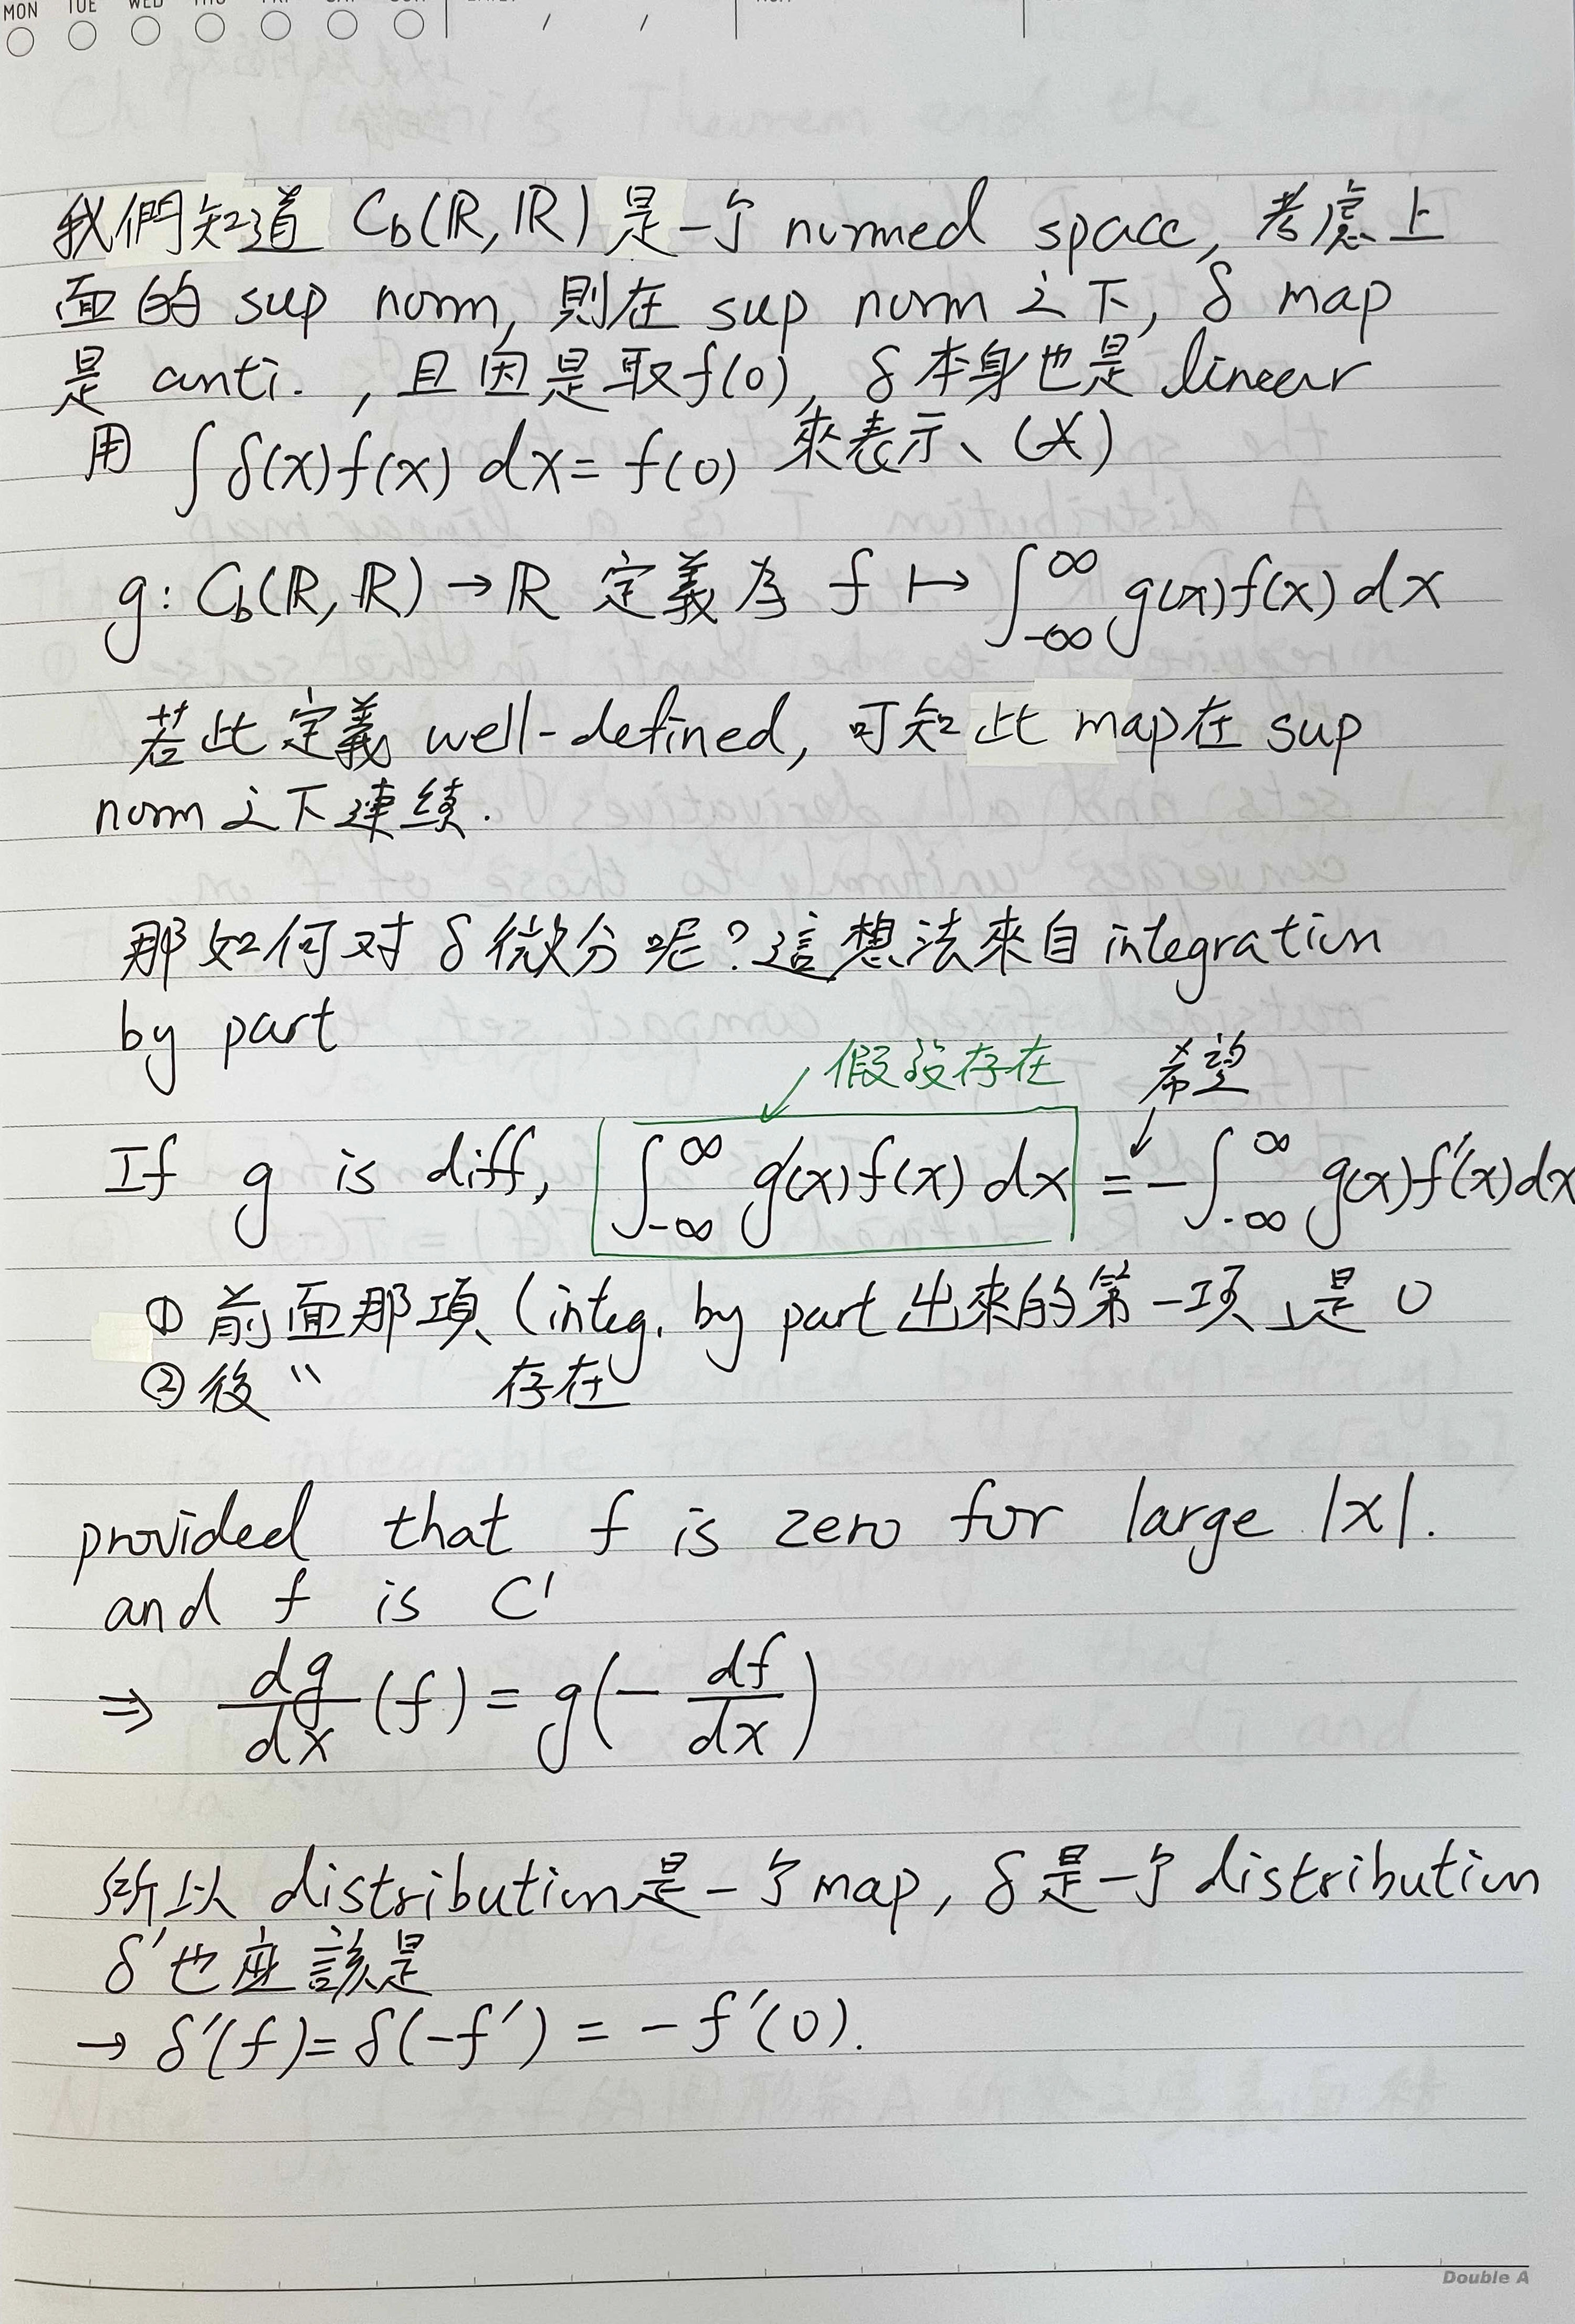 MON TUE WED THU FRI SAT SUN
我們知道 C_b(ℝ, ℝ) 是一个 normed space, 考慮上
面的 sup norm, 則在 sup norm 之下, δ map
是 conti. , 且因是取f(0), δ 本身也是 linear
用 ∫ δ(x)f(x) dx = f(0) 來表示、(X)
g: C_b(ℝ, ℝ) → ℝ 定義為 f ↦ ∫_{-∞}^{∞} g(x)f(x) dx
若此定義 well-defined, 可知此 map在 sup
norm 之下連續.
那如何对 δ 微分呢?這想法來自 integration
by part
假設存在 希望
If g is diff, ∫_{-∞}^{∞} g'(x)f(x) dx = -∫_{-∞}^{∞} g(x)f'(x)dx
① 前面那項 (integ. by part 出來的第一项) 是 0
② 後 〃 存在
provided that f is zero for large |x|.
and f is C'
⇒ dg/dx (f) = g(- df/dx)
所以 distribution是一个 map, δ 是一个 distribution
δ'也应該是
→ δ'(f) = δ(-f') = -f'(0).
Double A